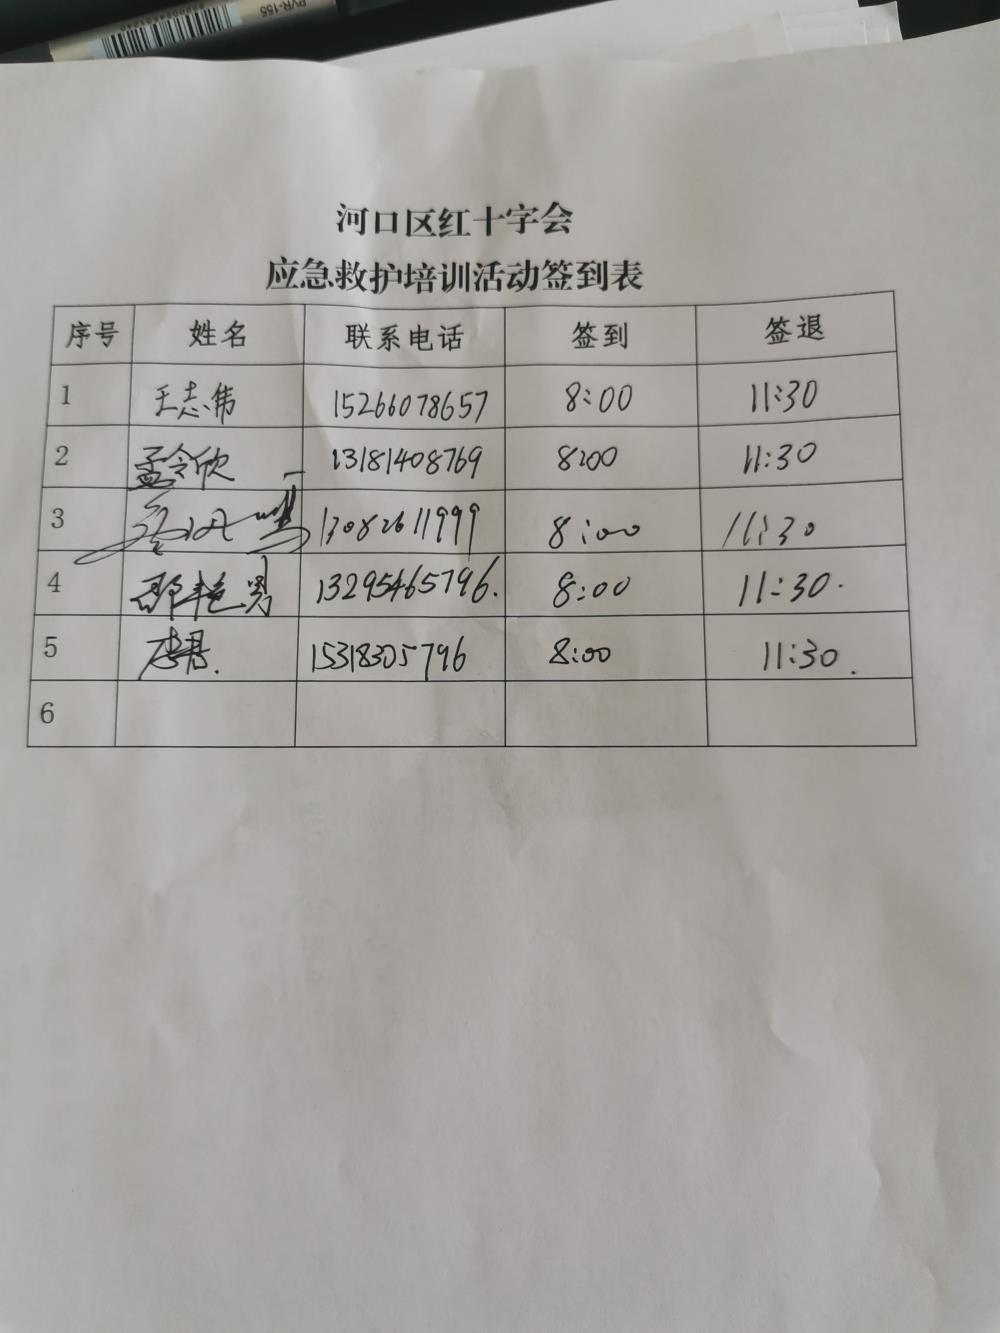 PVR-155
河口区红十字会
应急救护培训活动签到表
序号 姓名 联系电话 签到 签退
1 王志伟 15266078657 8:00 11:30
2 孟令欣 13181408769 8:00 11:30
3 13082611999 8:00 11:30
4 13295465796. 8:00 11:30.
5 15318305796 8:00 11:30.
6